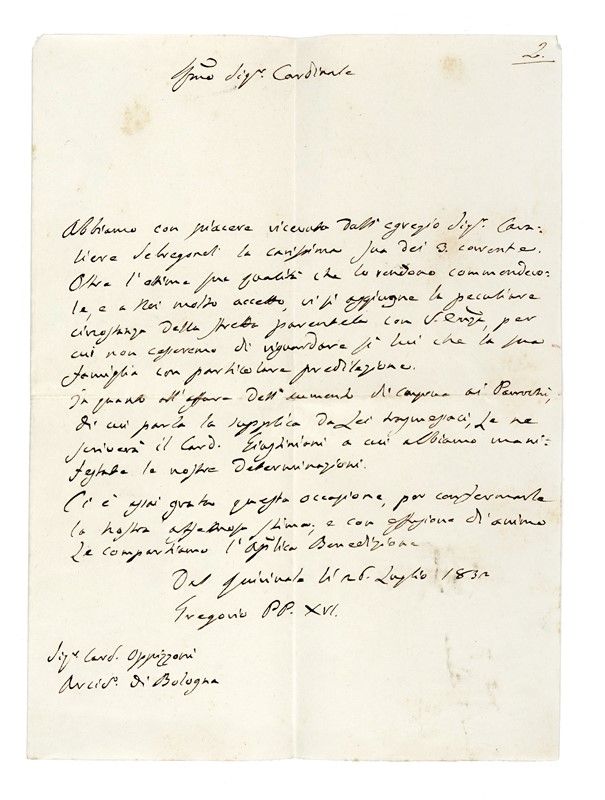 2.
Sig.r Cardinale
Abbiamo con piacere ricevuto dall'egregio Sig.r Cava-
liere la carissima sua dei 3. corrente.
Oltre l'ottime sue qualità che lo rendono commendevo-
le, e a Noi molto accetto, vi si aggiugne la peculiare
circostanza della stretta parentela con per
cui non cesseremo di riguardare sì lui che la sua
famiglia con particolare predilezione.
In quanto all'affare dell'aumento di congrua ai Parrochi,
di cui parla la supplica da Lei trasmessaci, Le ne
scriverà il Card. Giustiniani a cui abbiamo mani-
festate le nostre determinazioni.
Ci è assai grata questa occasione, per confermarle
la nostra affettuosa stima; e con effusione di animo
Le compartiamo l'Ap̃lica Benedizione
Dal Quirinale li 26. Luglio 1832
Gregorio PP. XVI.
Sig.r Card. Oppizzoni
Arciv.o di Bologna